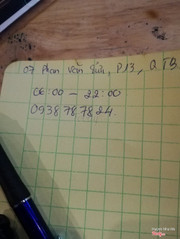 07 Phan Văn Sửu, P13, Q TB
06:00 – 22:00
0938 787824